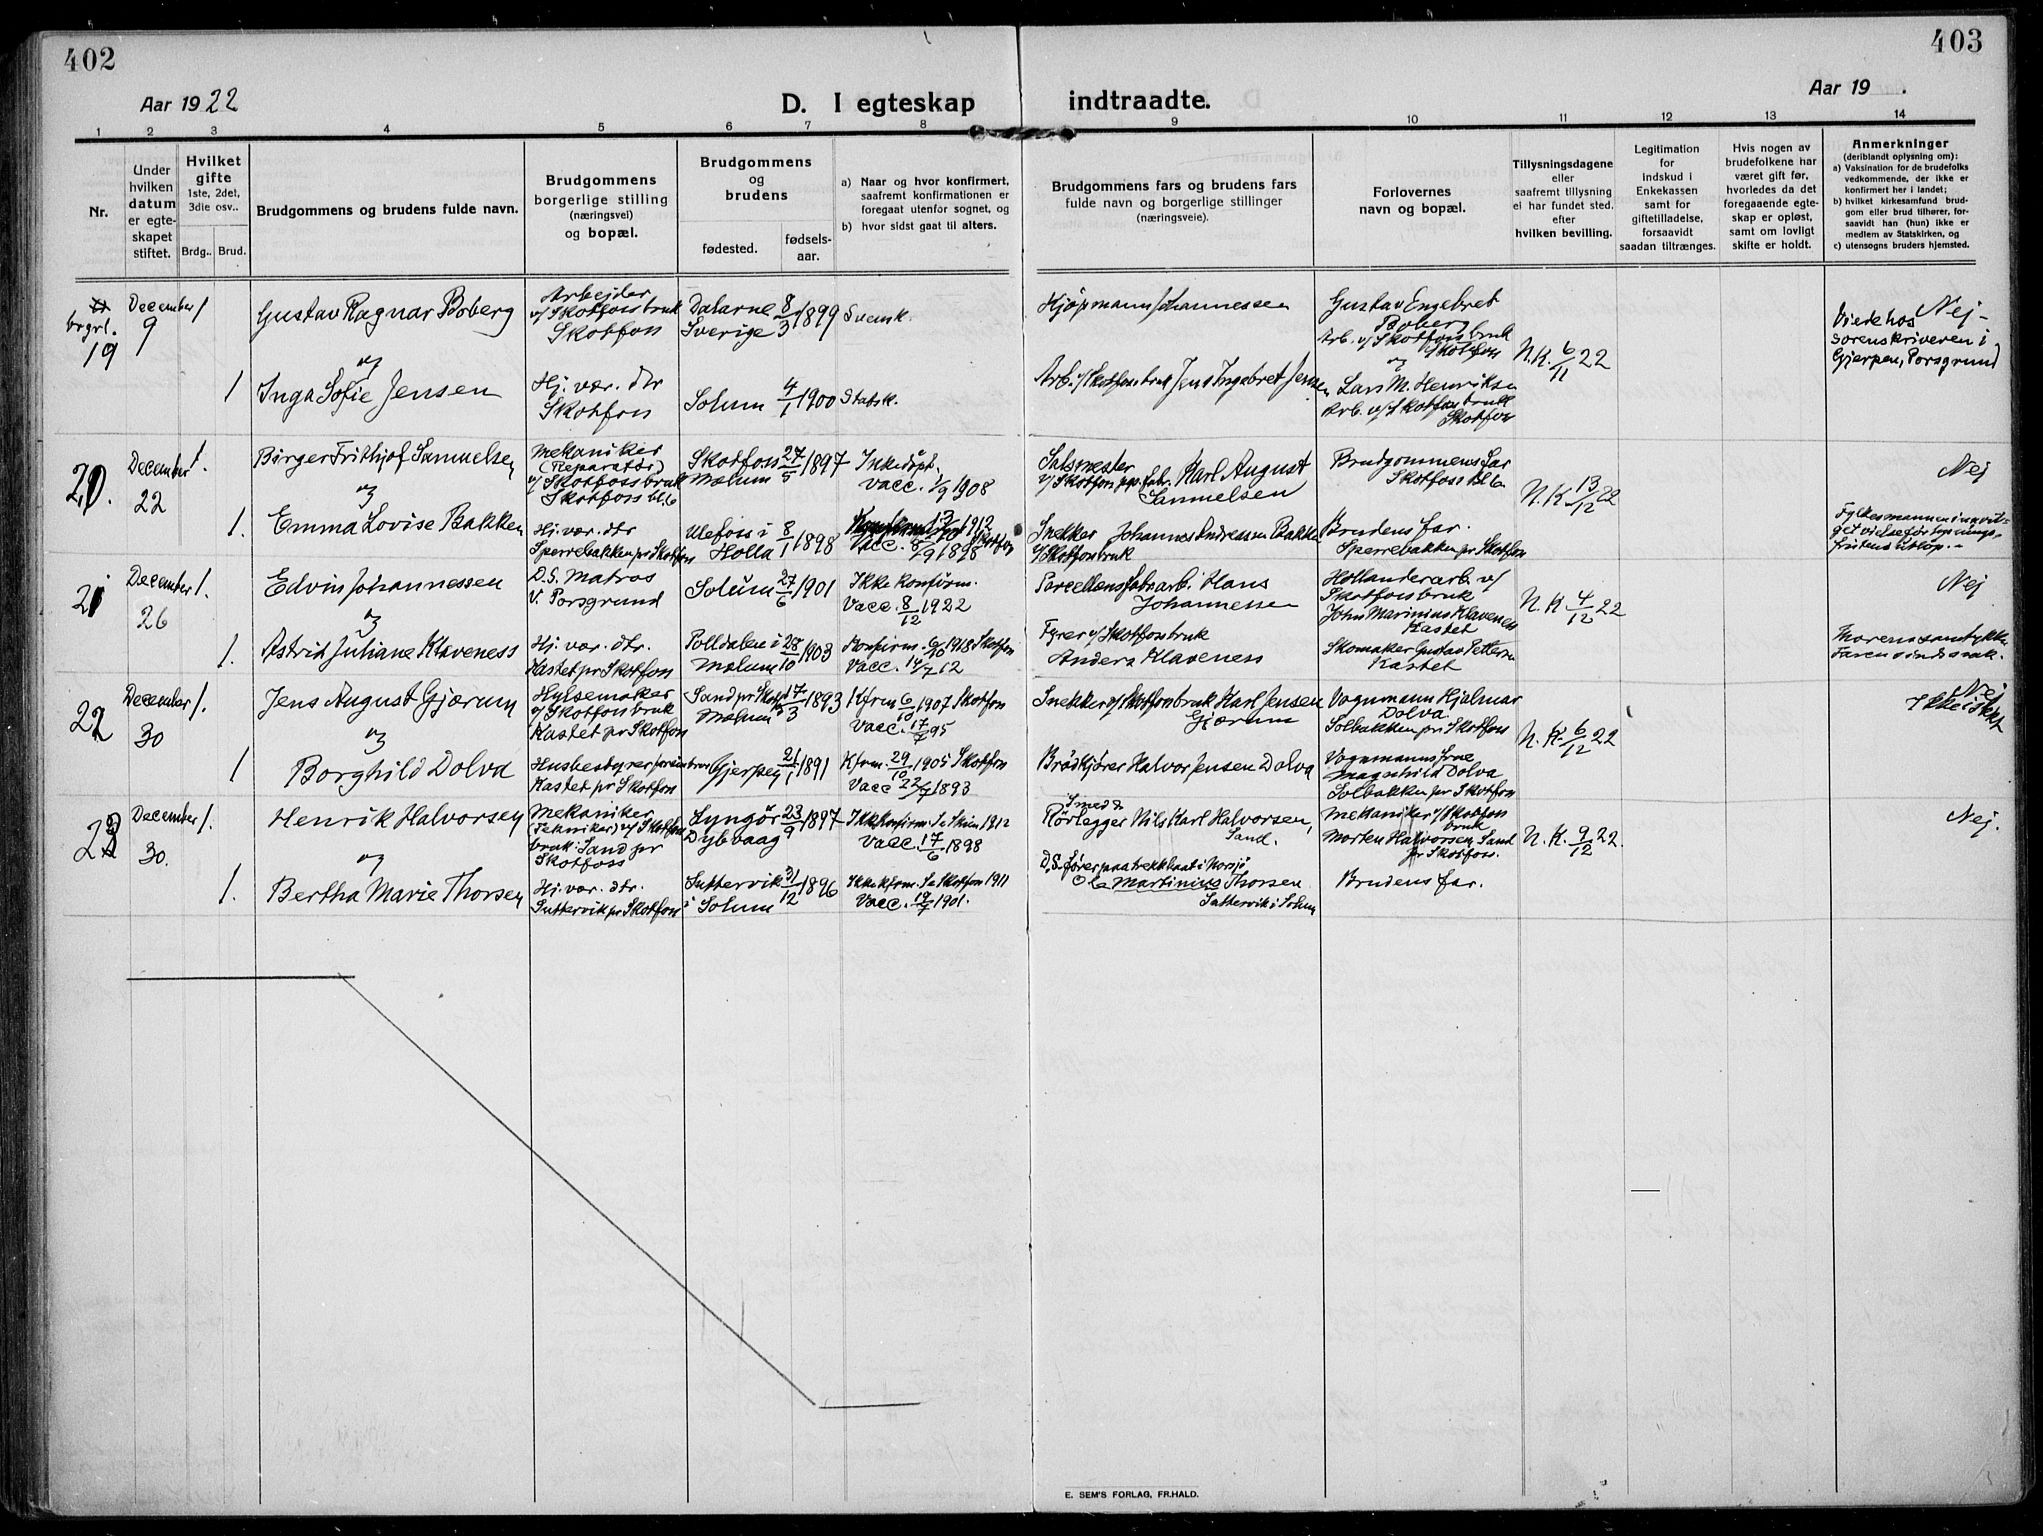 402
403
Aar 1922
D. I egteskap indtraadte.
Aar 19 .
1 2 3 4 5 6 7 8 9 10 11 12 13 14
Nr.
Under
hvilken
datum
er egte-
skapet
stiftet.
Hvilket
gifte
1ste, 2det,
3die osv..
Brdg.. Brud.
Brudgommens og brudens fulde navn.
Brudgommens
borgerlige stilling
(næringsvei)
og bopæl.
Brudgommens
og
brudens
fødested.
fødsels-
aar.
a) Naar og hvor konfirmert,
saafremt konfirmationen er
foregaat utenfor sognet, og
b) hvor sidst gaat til alters.
Brudgommens fars og brudens fars
fulde navn og borgerlige stillinger
(næringsveie).
Forlovernes
navn og bopæl.
Tillysningsdagene
eller
saafremt tillysning
ei har fundet sted,
efter
hvilken bevilling.
Legitimation
for
indskud i
Enkekassen
samt for
giftetilladelse,
forsaavidt
saadan tiltrænges.
Hvis nogen av
brudefolkene har
været gift før,
hvorledes da det
foregaaende egte-
skap er opløst,
samt om lovligt
skifte er holdt.
Anmerkninger
(deriblandt oplysning om):
a) Vaksination for de brudefolks
vedkommende, der ikke er
konfirmert her i landet;
b) hvilket kirkesamfund brud-
gom eller brud tilhører, for-
saavidt han (hun) ikke er
medlem av Statskirken, og
c) utensogns bruders hjemsted.
brgrl.
19
December
9
1
Gustav Ragnar Boberg
og
Arbejder
v/Skotfossbruk
Skotfoss
Dalarne
Sverige
8/3 1899
Svensk.
Kjøpmann Johannessen
Gustav Engebret
Boberg
Arb. v/Skotfossbruk
Skotfoss
og
N.K. 6/11 22
Nej-
Viede hos
sorenskriveren i
Gjerpen, Porsgrund
1
Inga Sofie Jensen
Hj. vær. dtr
Skotfoss
Solum
4/1 1900
Statsk.
Arb. v/Skotfossbruk Jens Ingebret Jensen
Lars M. Henriksen
Arb. v/Skotfossbruk
Skotfoss
20.
December
22
1.
Birger Frithjof Samuelsen
og
Mekaniker
(Reparatør)
v/Skotfossbruk
Skotfoss bl. 6
Skotfoss
Mælum
27/5 1897
Ikke døpt.
Vacc. 1/9 1908
Salsmester
v/Skotfoss pp. fabr. Karl August
Samuelsen
Brudgommens far
Skotfoss bl 6.
N.K 13/12 22
Nej
1.
Emma Lovise Bakken
Hj. vær. dtr
Sperrebakken pr Skotfoss
Ulefoss i
Holla
8/1 1898
1912
Vacc. 8/9 1898
Snekker Johannes Andressen Bakke
v/Skotfossbruk
Brudens far.
Sperrebakken pr Skotfoss
Fylkesmannen innvil-
get vielse før lysnings-
fristens utløp.-
21
December
26
1.
Edvin Johannessen
og
D.S. Matros
V. Porsgrund
Solum
27/6 1901
Ikke konfirm.
Vacc. 8/12 1922
Porcellensfabrarb. Hans
Johannessen
Hollenderarb. v/
Skotfossbruk
John Marinius Klaveness
Kastet
N. K 4/12 22
Nej
1.
Astrid Juliane Klaveness
Hj. vær. dtr.
Kastet pr Skotfoss
Polldalen i
Mælum
28/10 1903
Konfirm. 6/10 1918 Skotfoss
Vacc. 14/7 12
Fyrer v/Skotfossbruk
Anders Klaveness
Skomaker Gustav Pettersen
Kastet
Morens samtykke
Faren sindssvak.
22
December
30
1.
Jens August Gjærum
og
Hylsemaker
v/Skotfossbruk
Kastet pr Skotfoss
Sand pr Skotf
Mælum
17/3 1893
Kfrm 6/10 1907 Skotfoss
Vacc. 17/7 95
Snekker v/Skotfossbruk Karl Jensen
Gjærum
Vognmann Hjalmar
Dolva
Solbakken pr Skotfoss
N. K. 6/12 22
Nej
1
Borghild Dolva
Kastet pr Skotfoss
Gjerpen
21/1 1891
Kfrm. 29/10 1905 Skotfoss
Vacc 22/7 1893
Brødkjører Halvor Jensen Dolva
Vognmannsfrue
Magnhild Dolva
Solbakken pr Skotfoss
23
December
30.
1.
Henrik Halvorsen
og
Mekaniker
(Tekniker) v/Skotfoss
bruk: Sand pr
Skotfoss
Lyngør
Dybvaag
23/9 1897
Ikke Skien 1912
Vacc. 17/6 1898
Smed &
Rørlegger Nils Karl Halvorsen,
Sand.
Mekaniker v/Skotfoss
bruk
Morten Halvorsen, Sand
pr Skotfoss.
N. K. 9/12 22.
Nej.
1.
Bertha Marie Thorsen
Hj. vær. dtr.
Suttervik pr Skotfoss
Suttervik
i Solum
31/12 1896
Ikke kfrm. Skotfoss 1911
Vacc. 19/7 1901.
Ole Martinius Thorsen
Suttervik i Solum
Brudens far.
E. SEM'S FORLAG, FR.HALD.